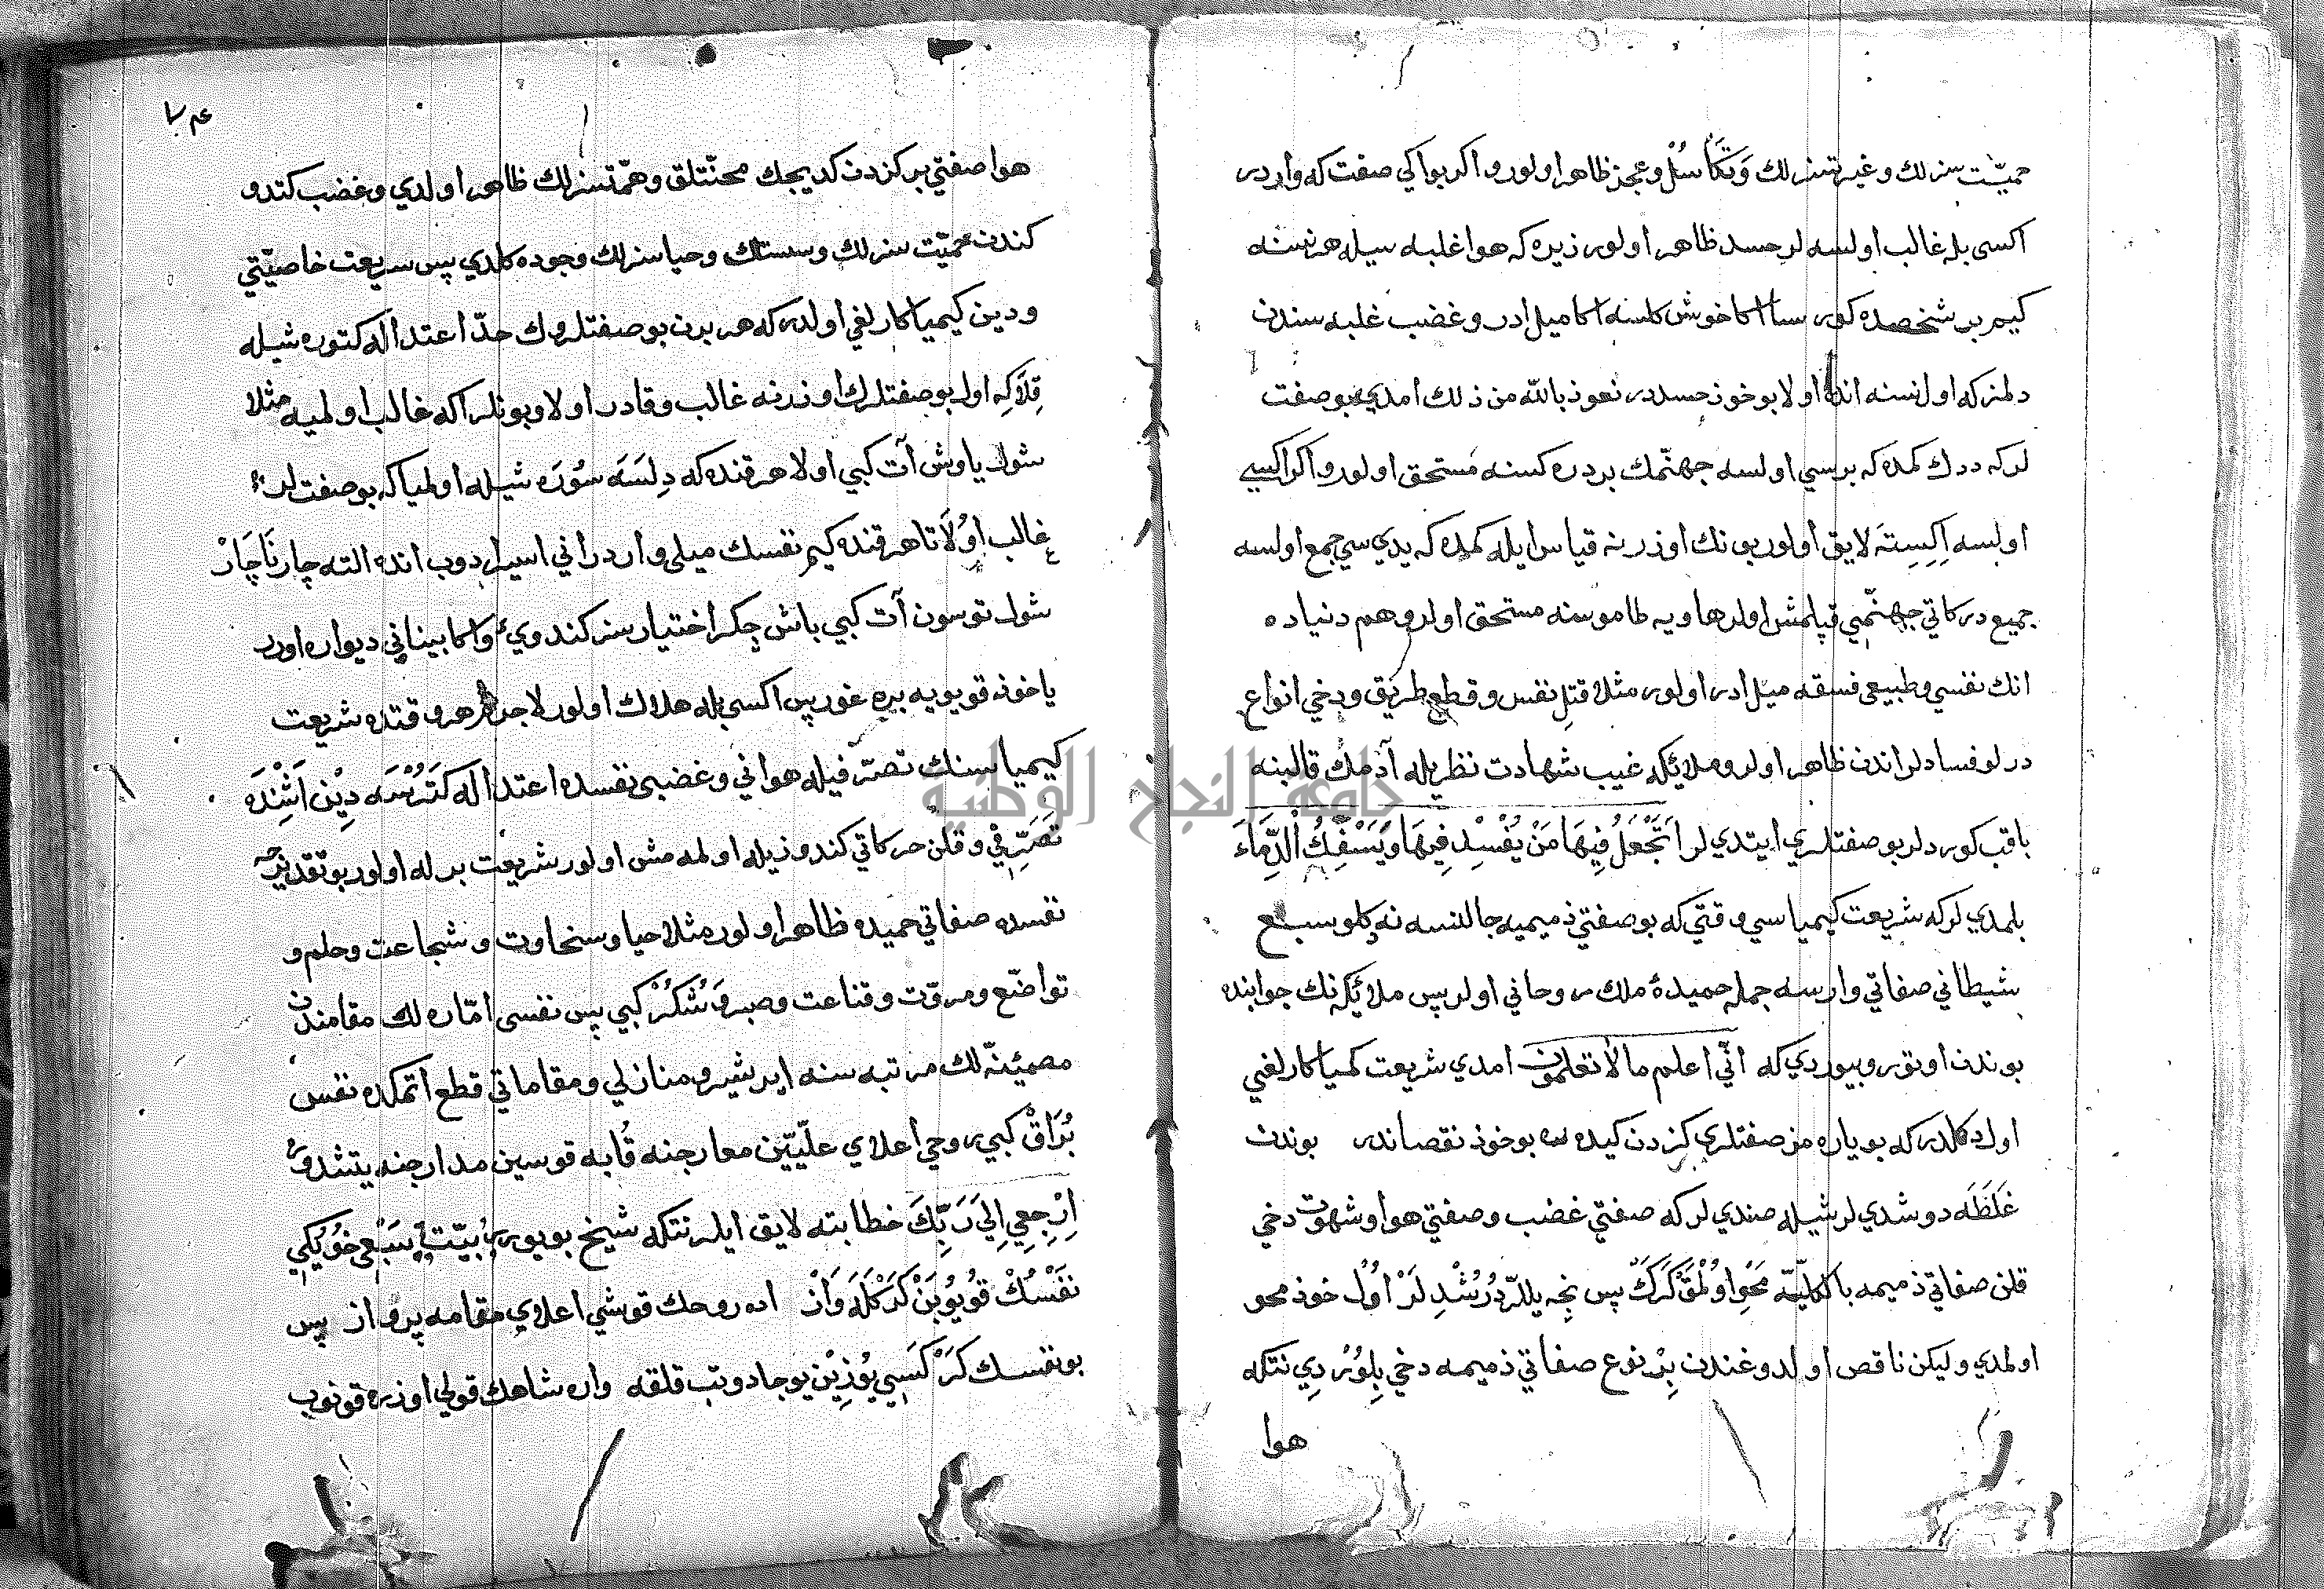 حميّت سزلك وغيرتسزلك وَتَكَاسُلْ وعجز ظاهر اولور و اكر بو ايكي صفت كه واردر
اكسى بله غالب اولسه لر حسد ظاهر اولور زيره كه هوا غلبه سيله هر نسنه
كيم بر شخصده كورسا اكا خوش كلسه اكا ميل ادر و غضب غلبه سندن
دلمز كه اول نسنه انده اولا بو خوذ حسددر نعوذ بالله من ذلك امدي بو صفت
لر كه ددك كمده كه برسي اولسه جهنّمك بر دره كسنه مستحق اولور و اكر اكسي
اولسه اِكِسِنَه لايق اولور بونك اوزرنه قياس ايله كمده كه يدي سي جمع اولسه
جميع دركاتي جهنّمي قپلمش اولر هاويه طاموسنه مستحق اولر و هم دنياده
انك نفسي و طبيعى فسقه ميل ادر اولور مثلا قتل نفس و قطع طريق و دخي انواع
درلو فسادلر اندن ظاهر اولر و ملائكه غيب شهادت نظريله آدمك قالبنه
باقب كورد لر بو صفتلري ايتدي لر اَتَجْعَلُ فِيهَا مَنْ يُفْسِدُ فِيهَا وَيَسْفِكُ الدِّمَاءَ
بلمدي لر كه شريعت كيمياسي وقتي كه بو صفتي ذميميه جالنسه نه كلو سبع
شيطاني صفاتي وارسه جمله حميدهٔ ملك روحاني اولر پس ملائكه نك جوابنده
بوندن اوتورو بيوردي كه انّي اعلم ما لا تعلمون امدي شريعت كمياكارلغي
اول دكلدر كه بو ياره مز صفتلري كزدن كيده سه بو خوذ نقصاندر بوندن
غَلَطَه دوشدي لر شيله صندي لر كه صفتي غضب و صفتي هوا و شهوت دخي
قلن صفاتي ذميمه بالكليّه مَحْو اولْمَقْ كَرَكْ پس نجه يللر دُرُشْدِلَرْ اُولْ خوذ محو
اولمدي و ليكن ناقص اولدوغندن بِرْ نوع صفاتي ذميمه دخي بِلُورْدِي نتكه
هوا
هوا صفتي بر كزدن كديجك محنّتلق و همّتسزلك ظاهر اولدي و غضب كتدو
كندن حميّت سزلك و سستلك و حياسزلك وجوده كلدي پس سريعت خاصيّتي
و دين كيمياكارلغي اولدر كه هر برن بو صفتلروك حدّ اعتداله كتوره شيله
قِلَا كِه اول بو صفتلرك اوزرنه غالب و قادر اولا و بونلر اكه غالب اولميه مثلا
شول ياوش آت كبي اولا هر قنده كه دِلَسَه سُورَه شيله اولميا كه بو صفت لر
غالب اوُلَا تا هر قنده كيم نفسك ميلى واردر اني اسير ادوب انده الته چار نَاچَارْ
شول توسون آت كبي باش چكر اختيارسز كندوي و اكا بيناني ديواره اورر
ياخوذ قويويه بيره غور پس اكسي بله هلاك اولور لاجرم هر وقتده شريعت
كيمياسنك تصرّفيله هواني و غضبى نفسده اعتداله كَتَرُسَه دِيْن اَشْنَدَه
تَصَرِّفِي و قلن حركاتي كندوزيله اولمه مش اولور شريعت برله اولور بو تقديرجه
نفسده صفاتي حميده ظاهر اولور مثلا حيا و سخاوت و شجاعت و حلم و
تواضع و مروّت و قناعت و صبر وَ شُكُرْ كبي پس نفسى امّاره لك مقامندن
مصميّنه لك مرتبه سنه ايرشير و منازلي و مقاماتي قطع اتمكده نفس
بُرَاقْ كبي روحي اعلاي علّيّين معارجنه قُابه قوسين مدارجنه يتشدورر
اِرْجِعِي اِلَي رَبِّكَ خطابته لايق ايلر نتكه شيخ بو يورر بيت سَبُعِي خُويَكِي
نَفْسُكْ قُويُوبَنْ كَرَكَلَه وَانْ اده روحك قوشي اعلاي مقامه پرواز پس
بو نفسك كَرَكَسَي يُوزِيْن يوجادوتب قلقه واره شاهك قولي اوزره قونوب